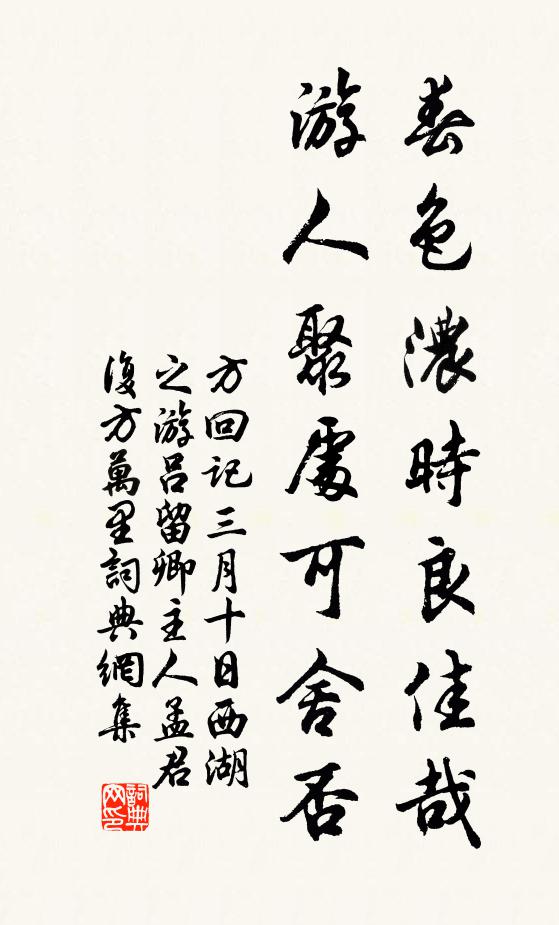 春色濃時良佳哉
游人聚處可舍否
方回記三月十日西湖
之游呂留卿主人孟君
復方萬里詞典網集
詞典
网印